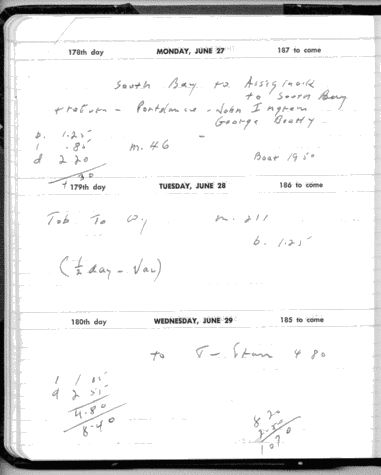 178th day MONDAY, JUNE 27 187 to come
South Bay to
to South Bay
+ return - - John Ingram
George Beatty
b. 1.25
l .85 m. 46
d 2 20 Boat 19 50
179th day TUESDAY, JUNE 28 186 to come
Tob To m. 211
b. 1.25
(1/2 day - Var)
180th day WEDNESDAY, JUNE 29 185 to come
to 4 80
l 1
d 2
4.80
8.40
8 20
2.50
10 70